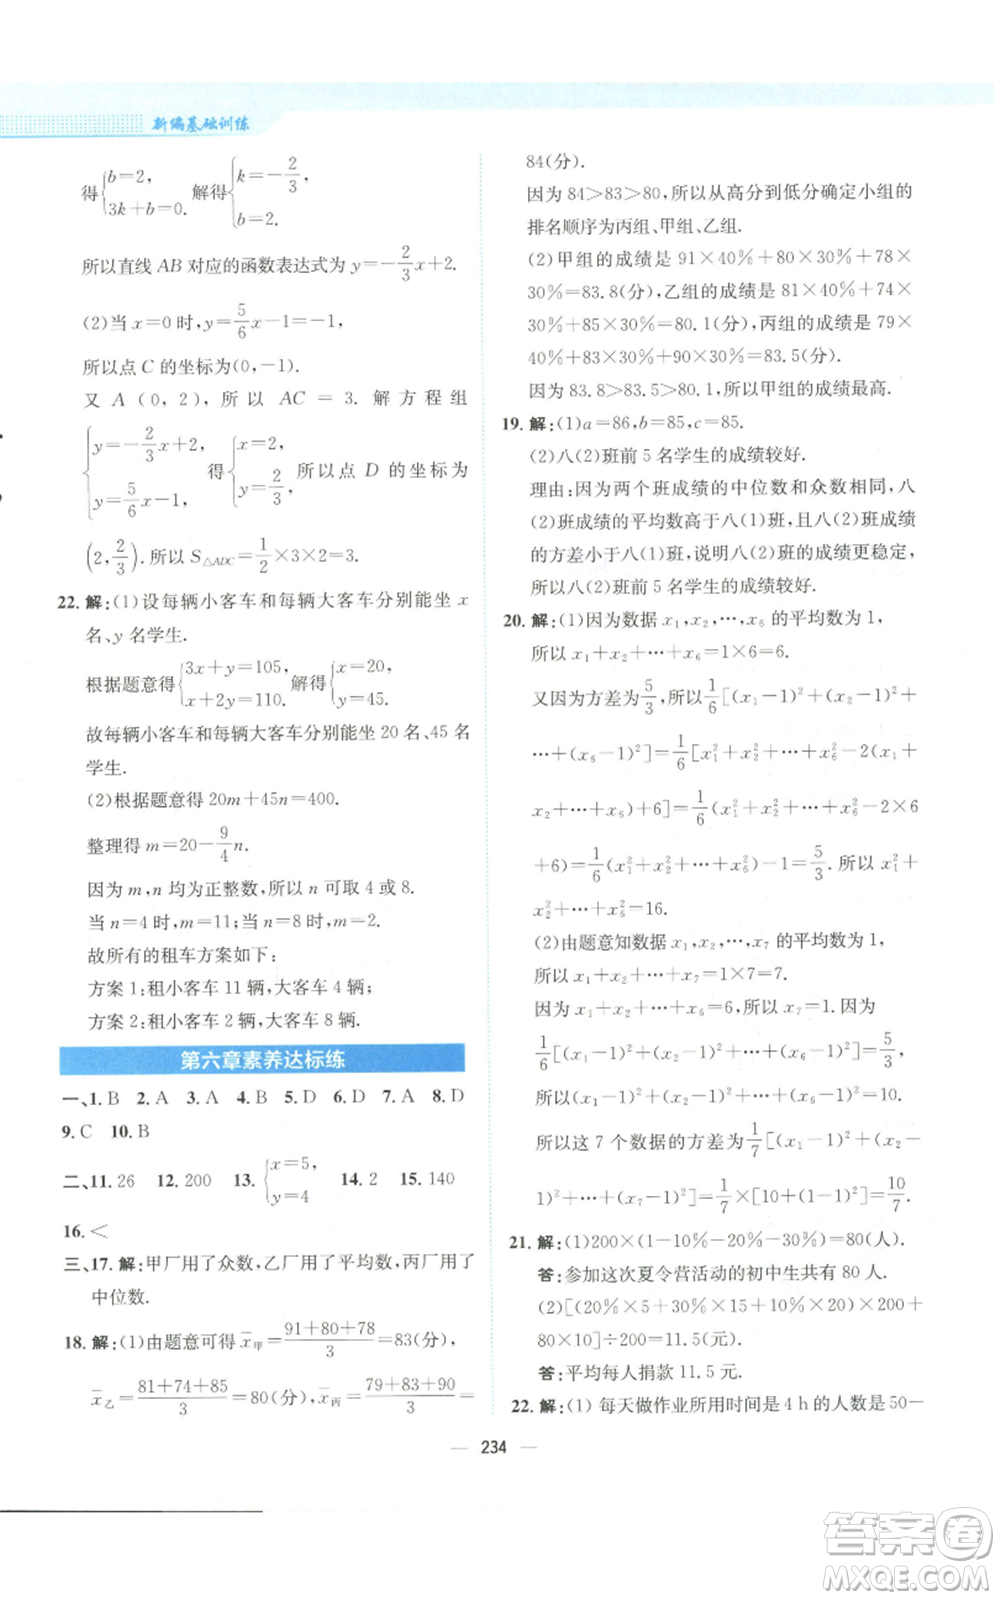 新编基础训练
得{b=2, 3k+b=0. 解得{k=-2/3, b=2.
所以直线 AB 对应的函数表达式为 y=-2/3x+2.
(2)当 x=0 时,y=5/6x-1=-1,
所以点 C 的坐标为(0,-1).
又 A (0, 2), 所以 AC = 3. 解方程组
{y=-2/3x+2, y=5/6x-1, 得{x=2, y=2/3, 所以点 D 的坐标为
(2,2/3).所以 S△ADC=1/2×3×2=3.
22.解:(1)设每辆小客车和每辆大客车分别能坐 x
名、y 名学生.
根据题意得{3x+y=105, x+2y=110. 解得{x=20, y=45.
故每辆小客车和每辆大客车分别能坐 20 名、45 名
学生.
(2)根据题意得 20m+45n=400.
整理得 m=20-9/4n.
因为 m,n 均为正整数,所以 n 可取 4 或 8.
当 n=4 时,m=11;当 n=8 时,m=2.
故所有的租车方案如下:
方案 1:租小客车 11 辆,大客车 4 辆;
方案 2:租小客车 2 辆,大客车 8 辆.
第六章素养达标练
一、1.B 2.A 3.A 4.B 5.D 6.D 7.A 8.D
9.C 10.B
二、11.26 12.200 13.{x=5, y=4 14.2 15.140
16.<
三、17.解:甲厂用了众数,乙厂用了平均数,丙厂用了
中位数.
18.解:(1)由题意可得 x̄甲=(91+80+78)/3=83(分),
x̄乙=(81+74+85)/3=80(分),x̄丙=(79+83+90)/3=
84(分).
因为 84>83>80,所以从高分到低分确定小组的
排名顺序为丙组、甲组、乙组.
(2)甲组的成绩是 91×40%+80×30%+78×
30%=83.8(分),乙组的成绩是 81×40%+74×
30%+85×30%=80.1(分),丙组的成绩是 79×
40%+83×30%+90×30%=83.5(分).
因为 83.8>83.5>80.1,所以甲组的成绩最高.
19.解:(1)a=86,b=85,c=85.
(2)八(2)班前 5 名学生的成绩较好.
理由:因为两个班成绩的中位数和众数相同,八
(2)班成绩的平均数高于八(1)班,且八(2)班成绩
的方差小于八(1)班,说明八(2)班的成绩更稳定,
所以八(2)班前 5 名学生的成绩较好.
20.解:(1)因为数据 x₁,x₂,…,x₆ 的平均数为 1,
所以 x₁+x₂+…+x₆=1×6=6.
又因为方差为5/3,所以1/6[(x₁-1)²+(x₂-1)²+
…+(x₆-1)²]=1/6[x₁²+x₂²+…+x₆²-2(x₁+
x₂+…+x₆)+6]=1/6(x₁²+x₂²+…+x₆²-2×6
+6)=1/6(x₁²+x₂²+…+x₆²)-1=5/3. 所以 x₁²+
x₂²+…+x₆²=16.
(2)由题意知数据 x₁,x₂,…,x₇ 的平均数为 1,
所以 x₁+x₂+…+x₇=1×7=7.
因为 x₁+x₂+…+x₆=6,所以 x₇=1. 因为
1/6[(x₁-1)²+(x₂-1)²+…+(x₆-1)²]=5/3,
所以(x₁-1)²+(x₂-1)²+…+(x₆-1)²=10.
所以这 7 个数据的方差为1/7[(x₁-1)²+(x₂-
1)²+…+(x₇-1)²]=1/7×[10+(1-1)²]=10/7.
21.解:(1)200×(1-10%-20%-30%)=80(人).
答:参加这次夏令营活动的初中生共有 80 人.
(2)[(20%×5+30%×15+10%×20)×200+
80×10]÷200=11.5(元).
答:平均每人捐款 11.5 元.
22.解:(1) 每天做作业所用时间是 4 h 的人数是 50-
— 234 —
答案卷
MXQE.COM